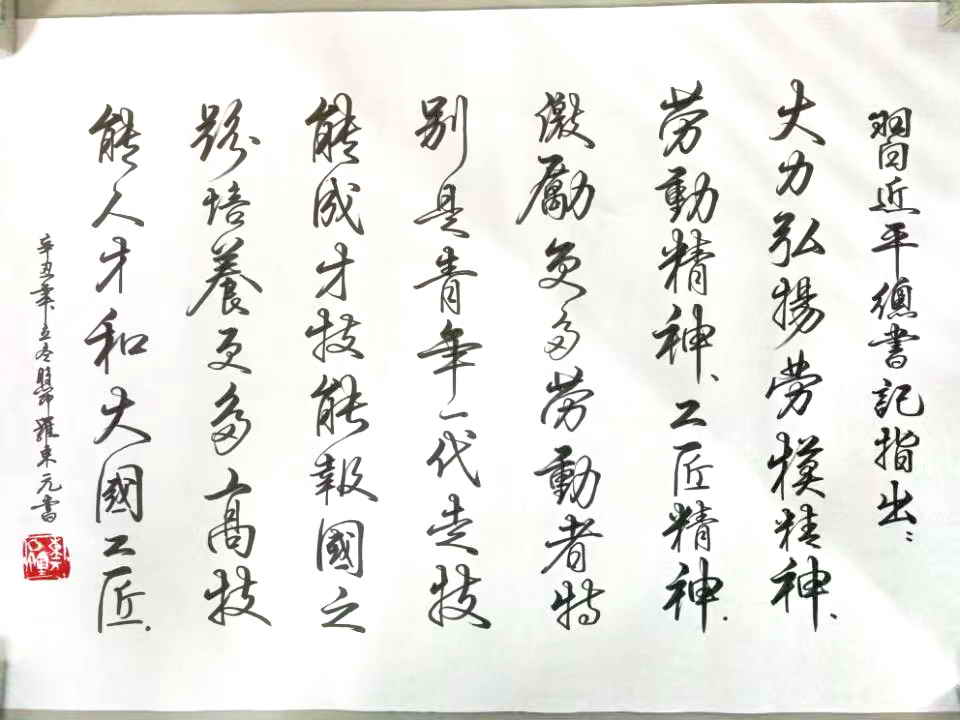 習近平總書記指出：
大力弘揚劳模精神、
劳動精神、工匠精神.
激勵更多劳動者特
别是青年一代走技
能成才技能報國之
路培養更多高技
能人才和大國工匠.
辛丑年立冬 羅東元書